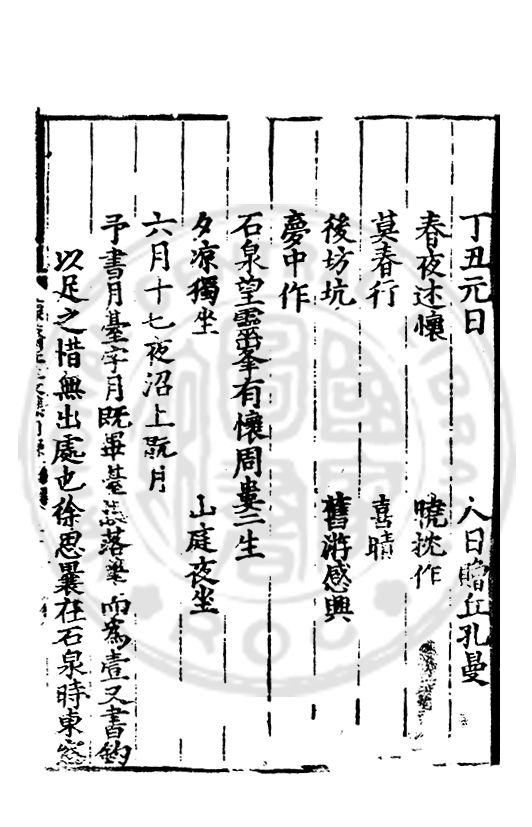 丁丑元日 人日贈丘孔曼
春夜述懷 曉枕作
莫春行 喜晴
後坊坑 舊游感興
夢中作
石泉望靈峯有懷周婁二生
夕凉獨坐 山庭夜坐
六月十七夜沼上翫月
予書月臺字月既畢臺 落 而為壹又書釣
以足之惜無出處也徐思曩在石泉時東窓